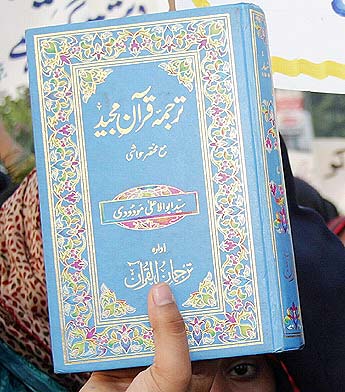 ترجمہ قرآن مجید
مع مختصر حواشی
سید ابوالاعلیٰ مودودی
ادارہ
ترجمان القرآن